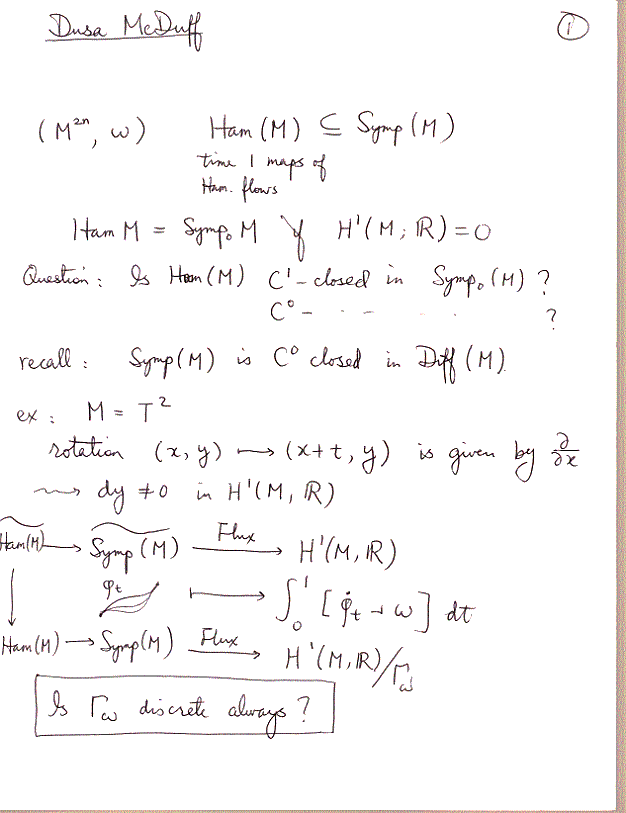 Dusa McDuff ①
(M²ⁿ, ω) Ham (M) ⊆ Symp (M)
time 1 maps of
Ham. flows
Ham M = Symp₀ M if H¹(M; ℝ) = 0
Question: Is Ham (M) C¹-closed in Symp₀ (M) ?
C⁰ - - - . . ?
recall: Symp (M) is C⁰ closed in Diff (M).
ex: M = T²
rotation (x, y) ↦ (x+t, y) is given by ∂/∂x
⇝ dy ≠ 0 in H¹(M, ℝ)
H̃am(M) → S̃ymp (M) Flux → H¹(M, ℝ)
φₜ ↦ ∫₀¹ [φ̇ₜ ⌟ ω] dt
Ham(M) → Symp(M) Flux → H¹(M, ℝ)/Γω
Is Γω discrete always ?